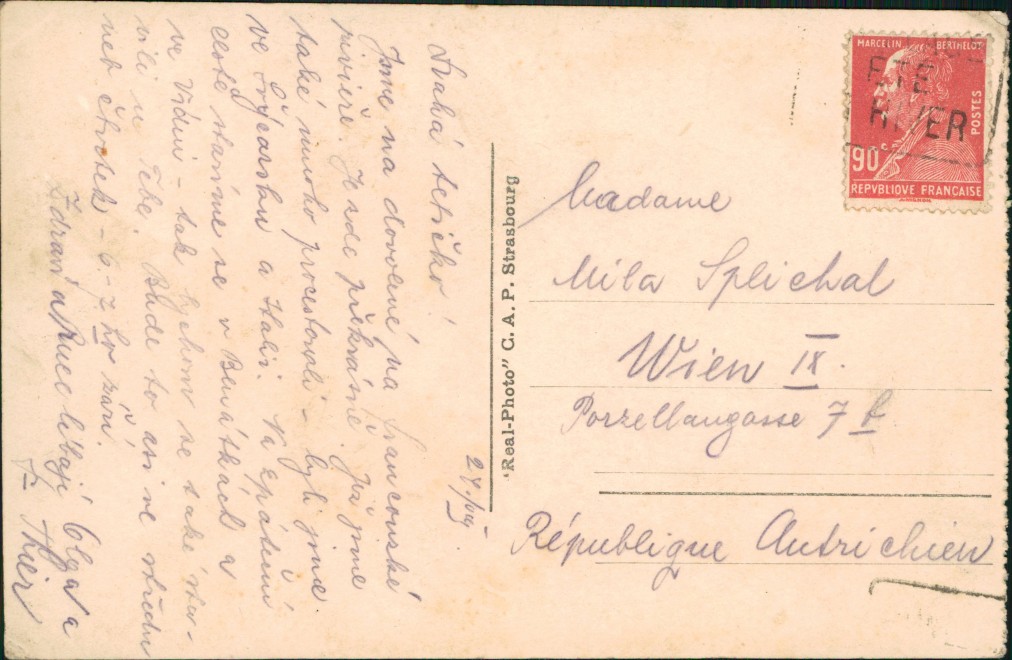 Drahá tetičko!
Jsme na dovolené na francouské
rivieře. Je zde překrásně. Již jsme
také mnoho procestovali – byli jsme
ve Švýcarsku a Italii. Na zpáteční
cestě stavíme se v Benátkách a
ve Vídni – tak bychom se také sta-
vili u Tebe. Bude to asi ve středu
neb čtvrtek – 6.–7. září.
Zdraví a Ruce líbají Olga a
27./VIII.
"Real-Photo" C. A. P. Strasbourg
MARCELIN BERTHELOT
POSTES
90c
REPVBLIQVE FRANÇAISE
ETE
HIVER
Madame
Mila Splichal
Wien IX.
Porzellangasse 7
République Autrichien